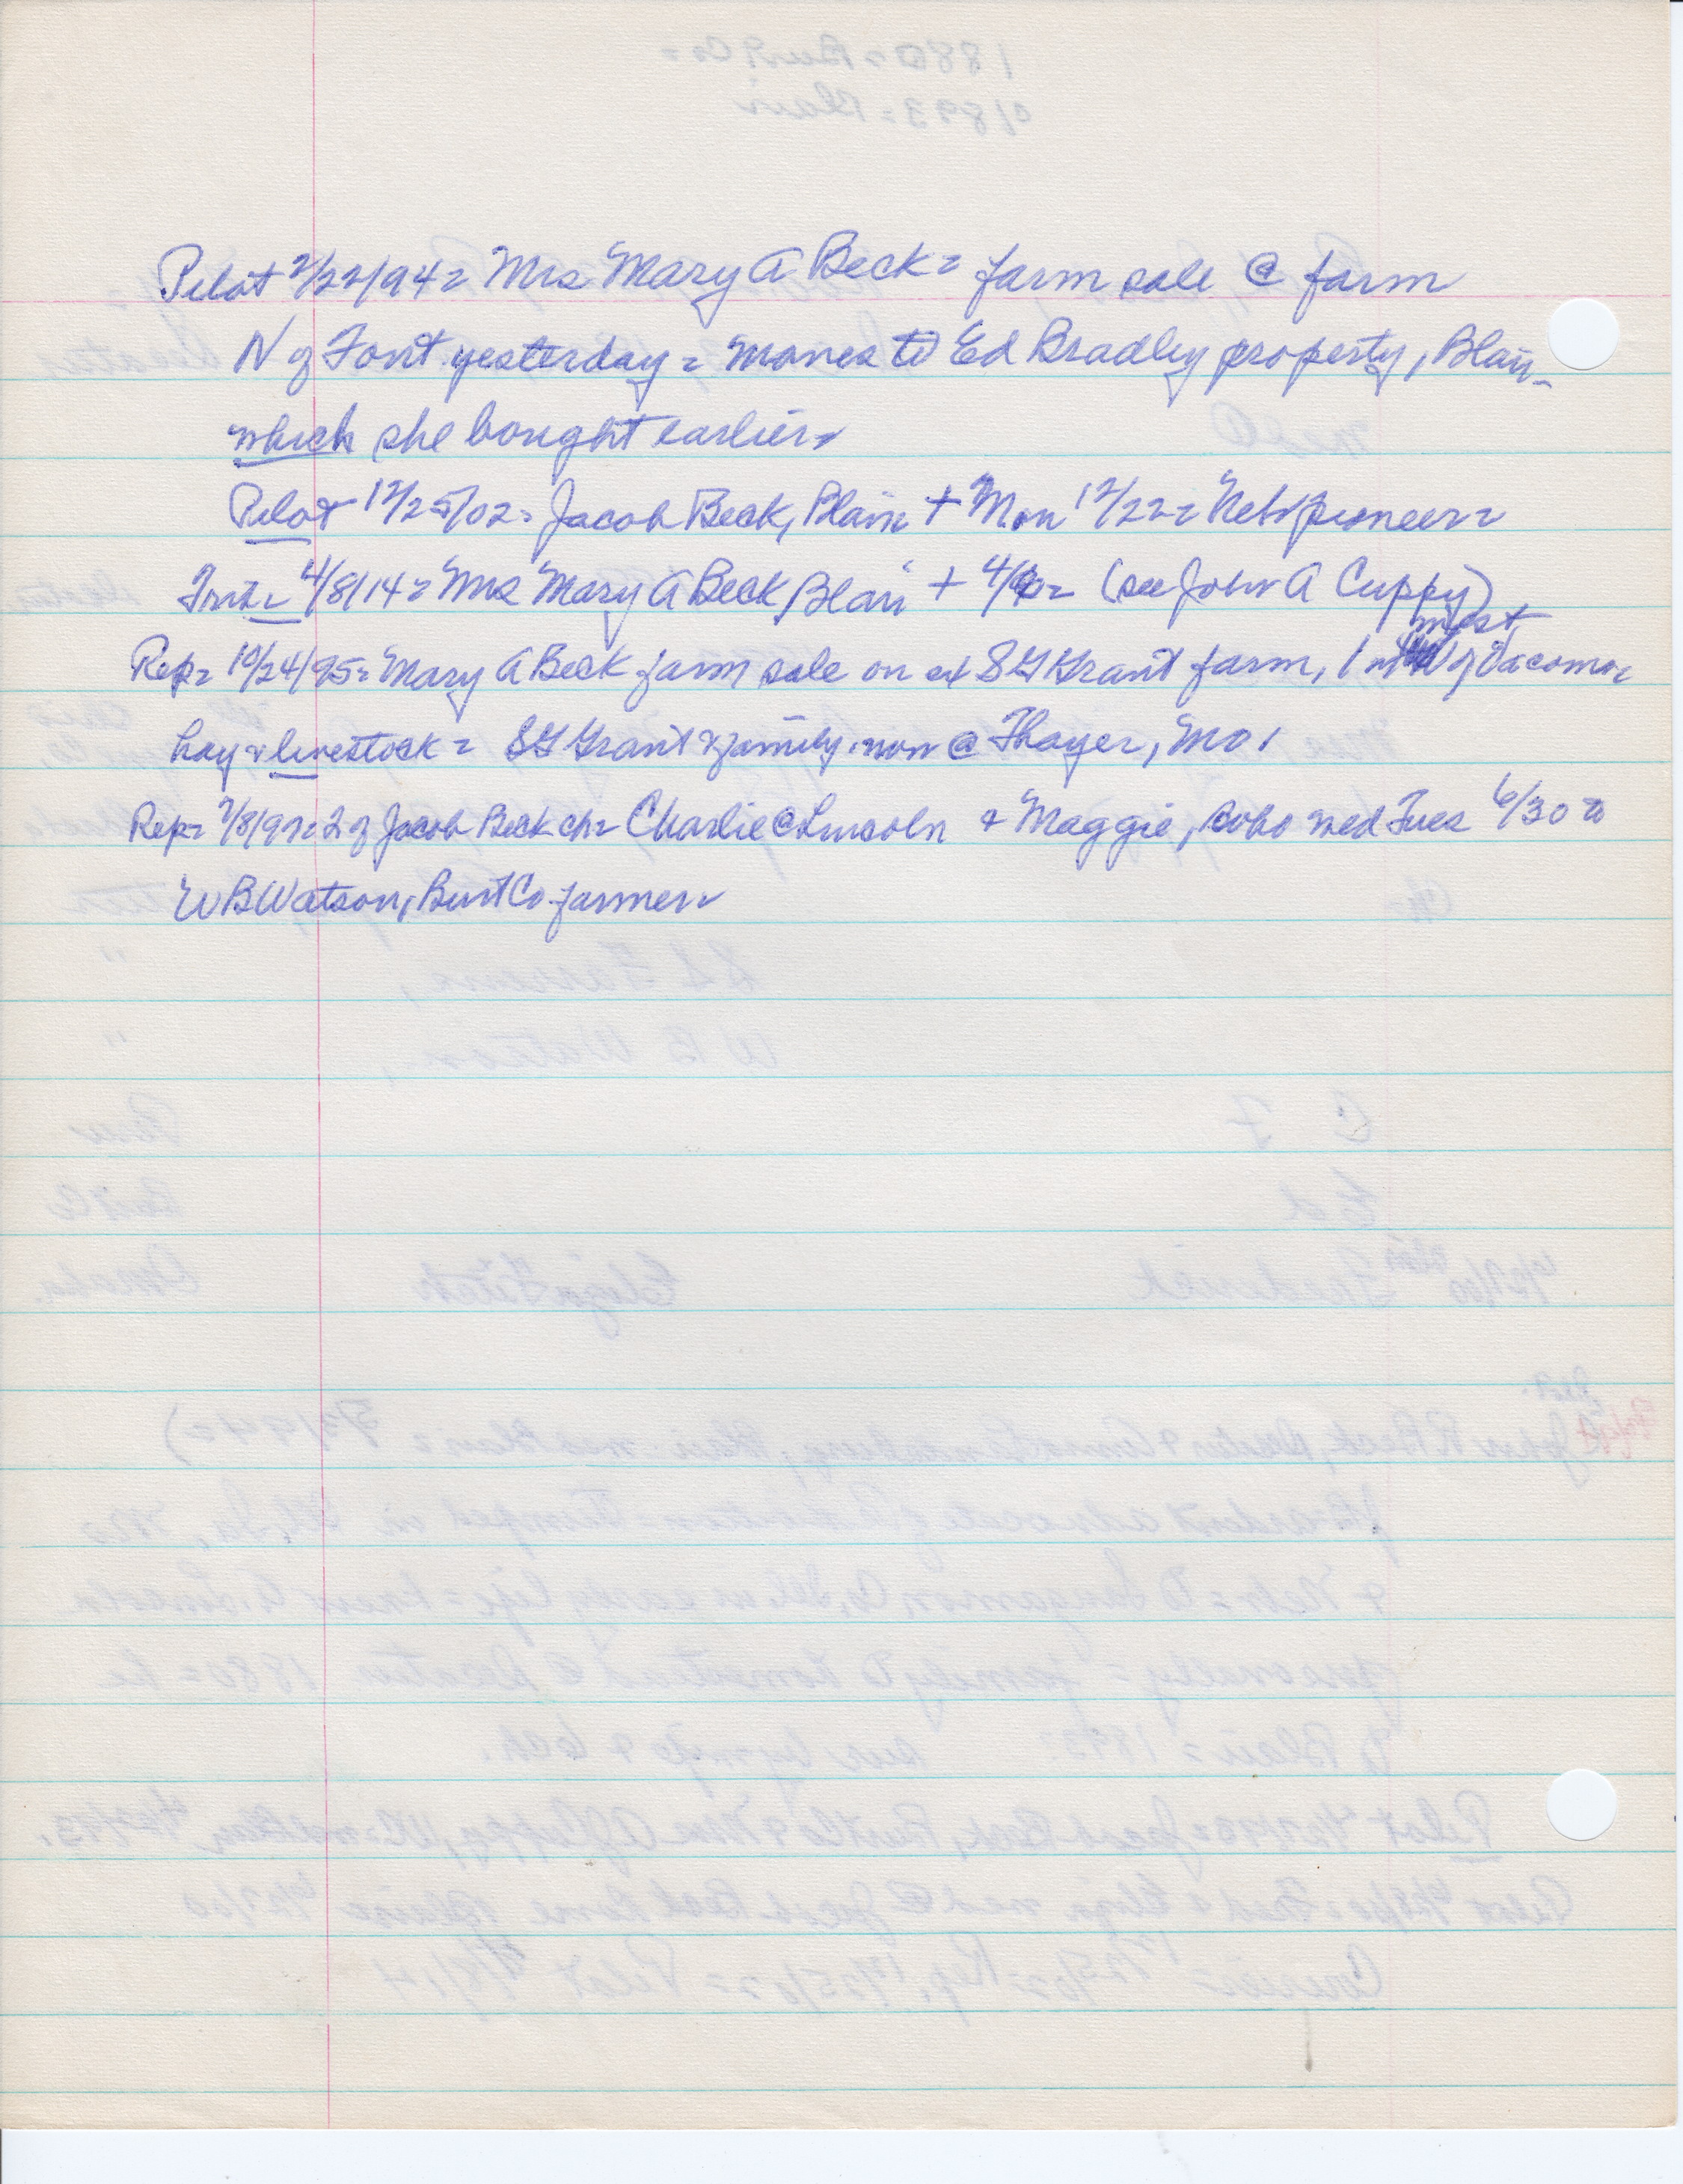 Pilot 2/22/94 = Mrs Mary A Beck = farm sale @ farm
N of Font. yesterday = moves to Ed Bradley property, Blair -
which she bought earlier =
Pilot 12/25/02 = Jacob Beck, Blair + Mon 12/22 = Nebr pioneer =
Trib = 4/8/14 = Mrs Mary A Beck, Blair + 4/ = (see John A Cuppy)
Rep = 10/24/95 = Mary A Beck farm sale on ex S G Grant farm, 1 west of Tacoma =
hay & livestock = S G Grant & family now @ Thayer, Mo.
Rep = 7/8/97 = 2 of Jacob Beck ch = Charlie @ Lincoln & Maggie, who wed Tues 6/30 to
W B Watson, Burt Co farmer =